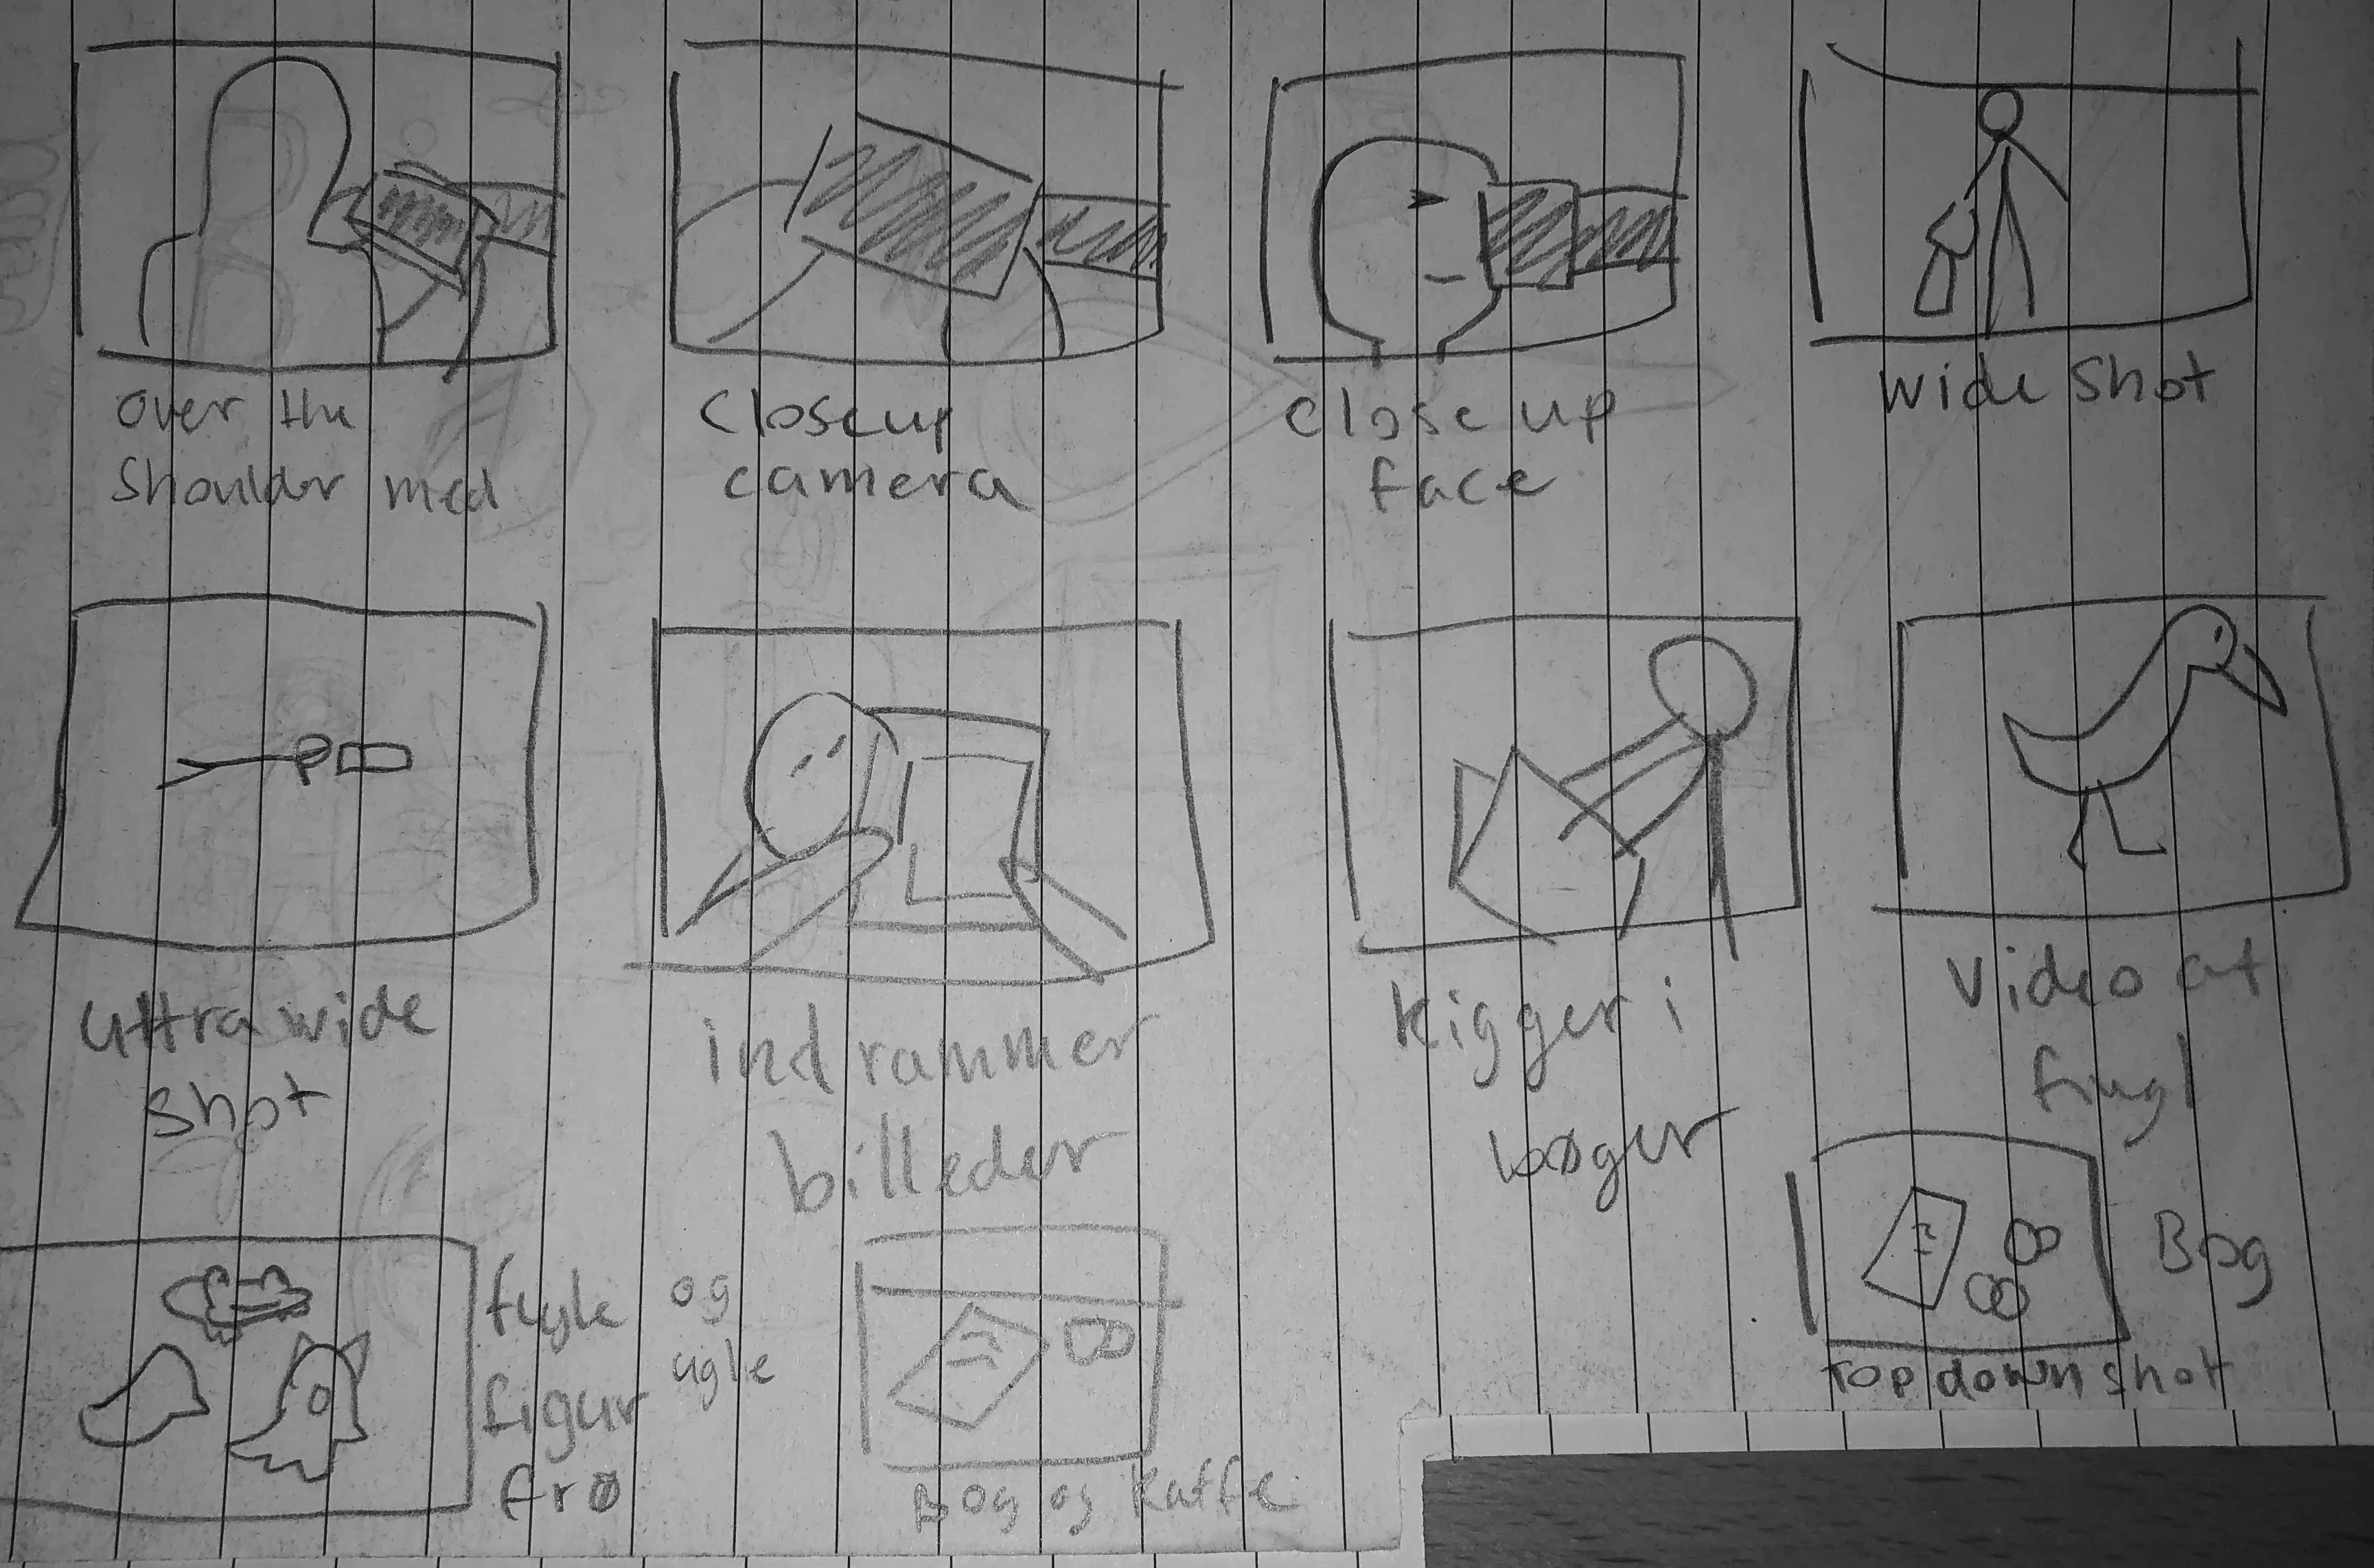 over the
shoulder med
closeup
camera
close up
face
wide shot
ultra wide
shot
indrammer
billeder
kigger i
bøger
Video af
fugl
fugle
figur
frø
og
ugle
Bog og kaffe
Bog
Top down shot